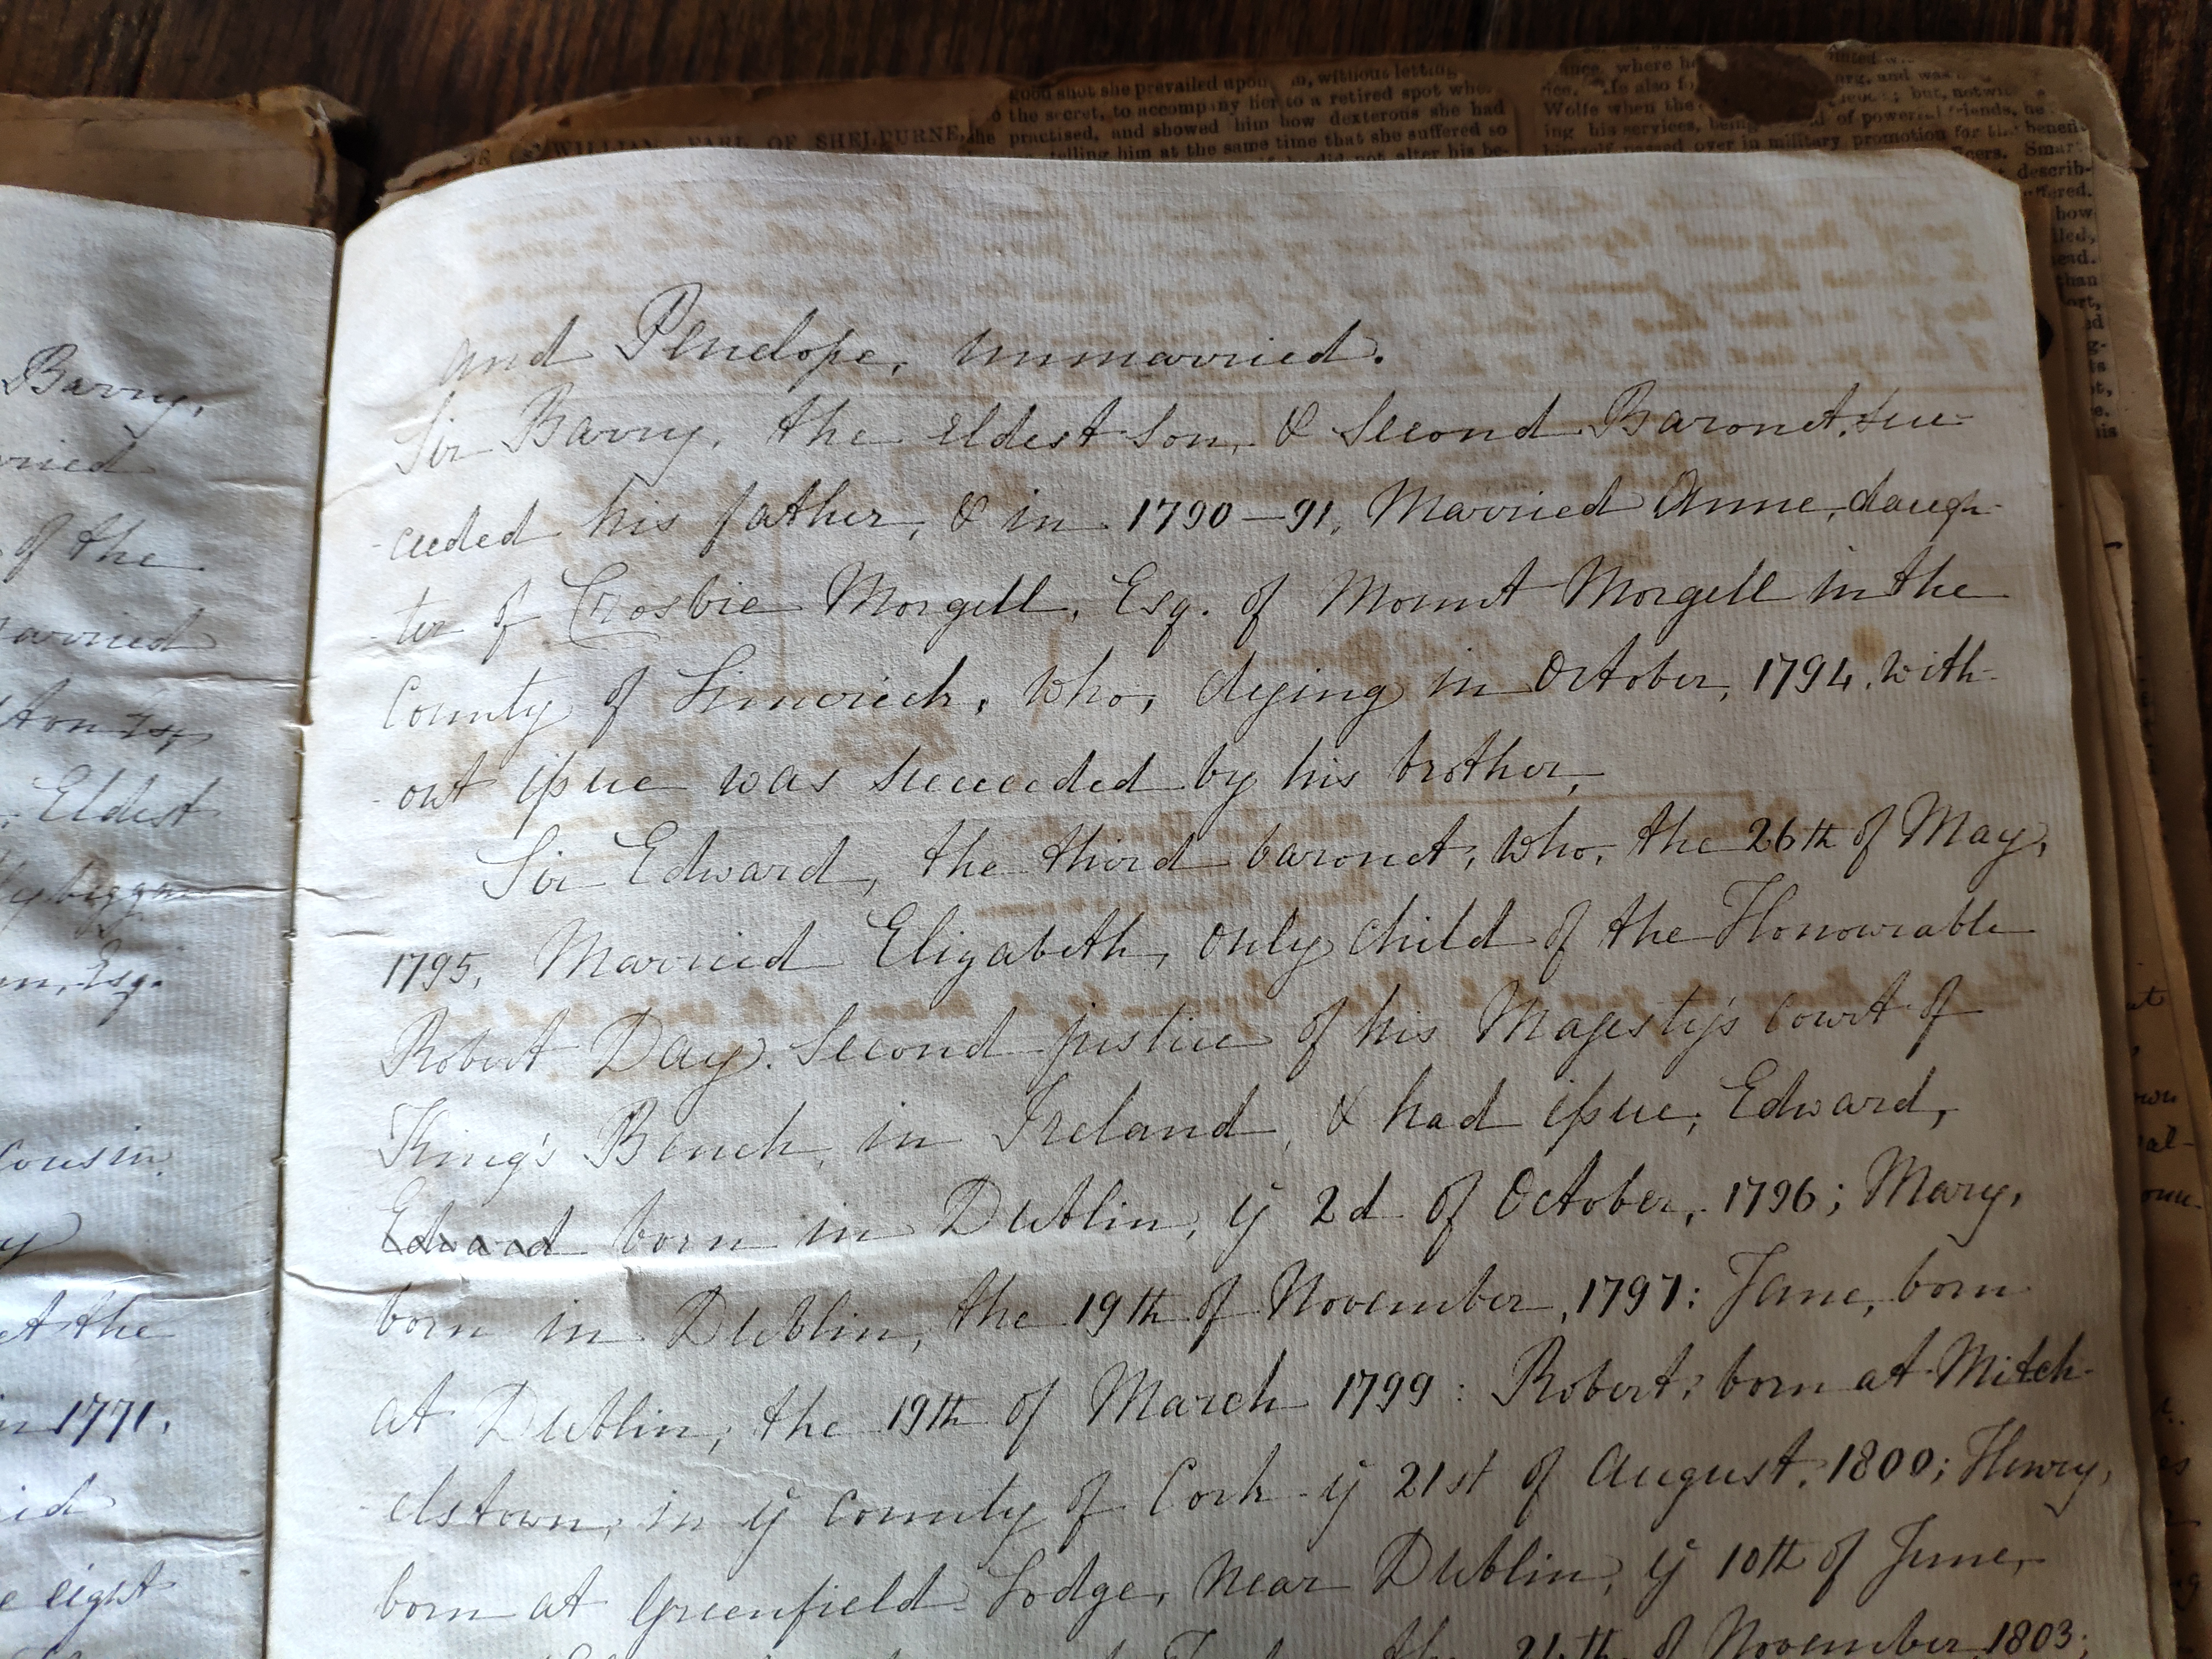 good shot she prevailed upon him, without letting
the secret, to accompany her to a retired spot
WILLIAM, EARL OF SHELBURNE,
she practised, and showed him how dexterous she had
telling him at the same time that she suffered so
did not alter his be-
where he
He also
Wolfe when the
but,
ing his services, being
of powerful friends, he
himself passed over in military promotion for the benefit
Smart
describ-
how
than
his
Barry,
of the
Eldest
Esq.
Cousin
at the
in 1771.
eight
and Penelope, unmarried.
Sir Barry, the Eldest Son, & Second Baronet, suc-
-ceeded his father, & in 1790-91, Married Anne, daugh-
-ter of Crosbie Morgell, Esq. of Mount Morgell in the
County of Limerick, who, dying in October, 1794, with-
-out issue was succeeded by his brother,
Sir Edward, the third baronet, who, the 26th of May,
1795, Married Elizabeth, only child of the Honourable
Robert Day, Second justice of his Majesty's Court of
King's Bench, in Ireland, & had issue, Edward,
Edward born in Dublin, ye 2d of October, 1796; Mary,
born in Dublin, the 19th of November, 1797: Jane, born
at Dublin, the 19th of March 1799: Robert, born at Mitch-
-elstown, in ye County of Cork ye 21st of August, 1800; Henry,
born at Greenfield Lodge, near Dublin, ye 10th of June,
of November, 1803;